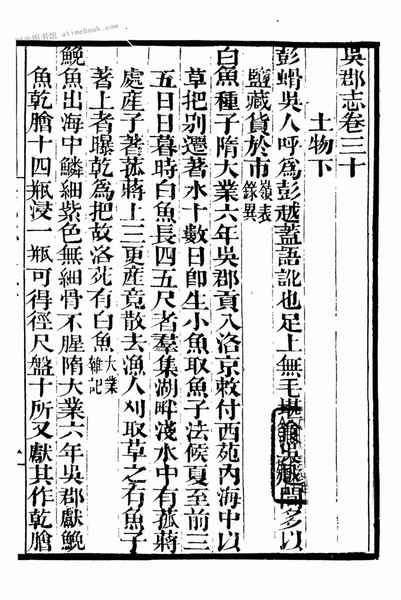 吳郡志卷三十
土物下
彭螖吳人呼爲彭越蓋語訛也足上無毛堪吳越間多以
鹽藏貨於市嶺表錄異
白魚種子隋大業六年吳郡貢入洛京敕付西苑內海中以
草把别遷著水十數日卽生小魚取魚子法候夏至前三
五日日暮時白魚長四五尺者羣集湖畔淺水中有菰蔣
處産子著菰蔣上三更産竟散去漁人刈取草之有魚子
著上者曝乾爲把故洛苑有白魚大業雜記
鮸魚出海中鱗細紫色無細骨不腥隋大業六年吳郡獻鮸
魚乾膾十四瓶浸一瓶可得徑尺盤十所又獻其作乾膾